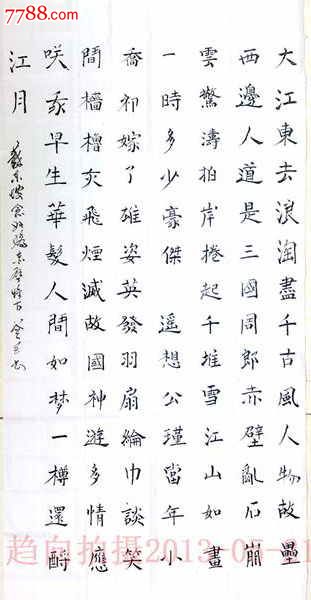 7788.com
大江東去浪淘盡千古風人物故壘
西邊人道是三國周郎赤壁亂石崩
雲驚濤拍岸捲起千堆雪江山如畫
一時多少豪傑遙想公瑾當年小
喬初嫁了雄姿英發羽扇綸巾談笑
間檣櫓灰飛煙滅故國神遊多情應
咲我早生華髮人間如梦一樽還酹
江月
蘇東坡念奴嬌赤壁懷古
拍摄2013-05-31